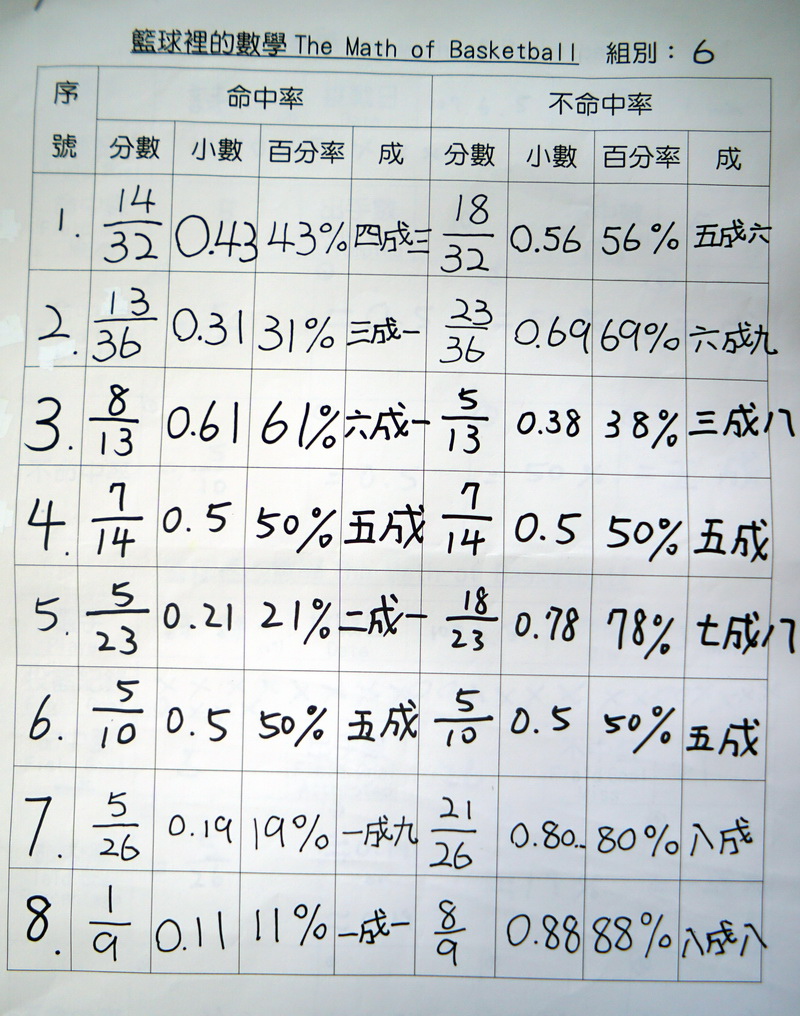 籃球裡的數學 The Math of Basketball 組別：6
序號 命中率 不命中率
分數 小數 百分率 成 分數 小數 百分率 成
1. 14/32 0.43 43% 四成三 18/32 0.56 56% 五成六
2. 13/36 0.31 31% 三成一 23/36 0.69 69% 六成九
3. 8/13 0.61 61% 六成一 5/13 0.38 38% 三成八
4. 7/14 0.5 50% 五成 7/14 0.5 50% 五成
5. 5/23 0.21 21% 二成一 18/23 0.78 78% 七成八
6. 5/10 0.5 50% 五成 5/10 0.5 50% 五成
7. 5/26 0.19 19% 一成九 21/26 0.80.. 80% 八成
8. 1/9 0.11 11% 一成一 8/9 0.88 88% 八成八